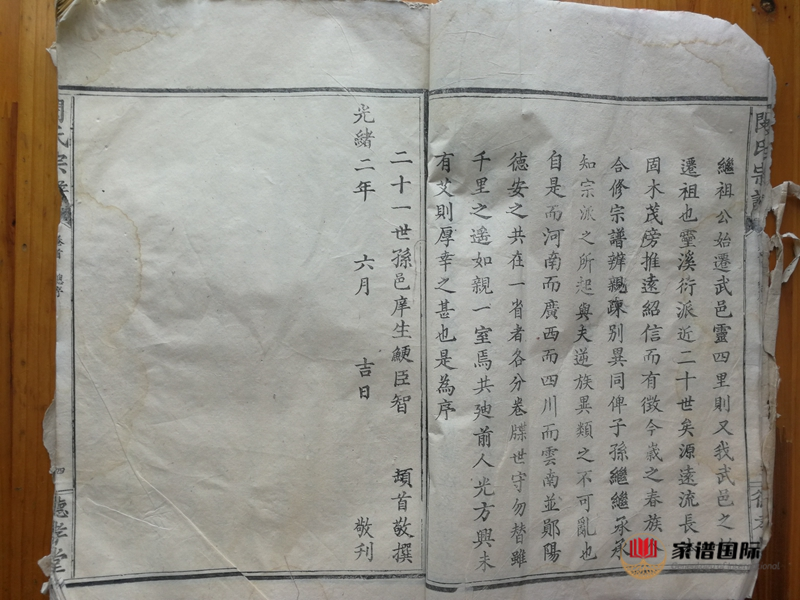 繼祖公始遷武邑靈四里則又我武邑之
遷祖也靈溪衍派近二十世矣源遠流長
固木茂傍推遠紹信而有徵今嵗之春族
合修宗譜辨親疎别異同俾子孫繼繼承承
知宗派之所起與夫逆族異類之不可亂也
自是而河南而廣西而四川而雲南並鄖陽
德安之共在一省者各分卷牒世守勿替雖
千里之遥如親一室焉共廸前人光方興未
有艾則厚幸之甚也是為序
二十一世孫邑庠生鯁臣智 頓首敬撰
光緒二年 六月 吉日 敬刊
氏宗
卷首
四
德孝堂
家谱国际